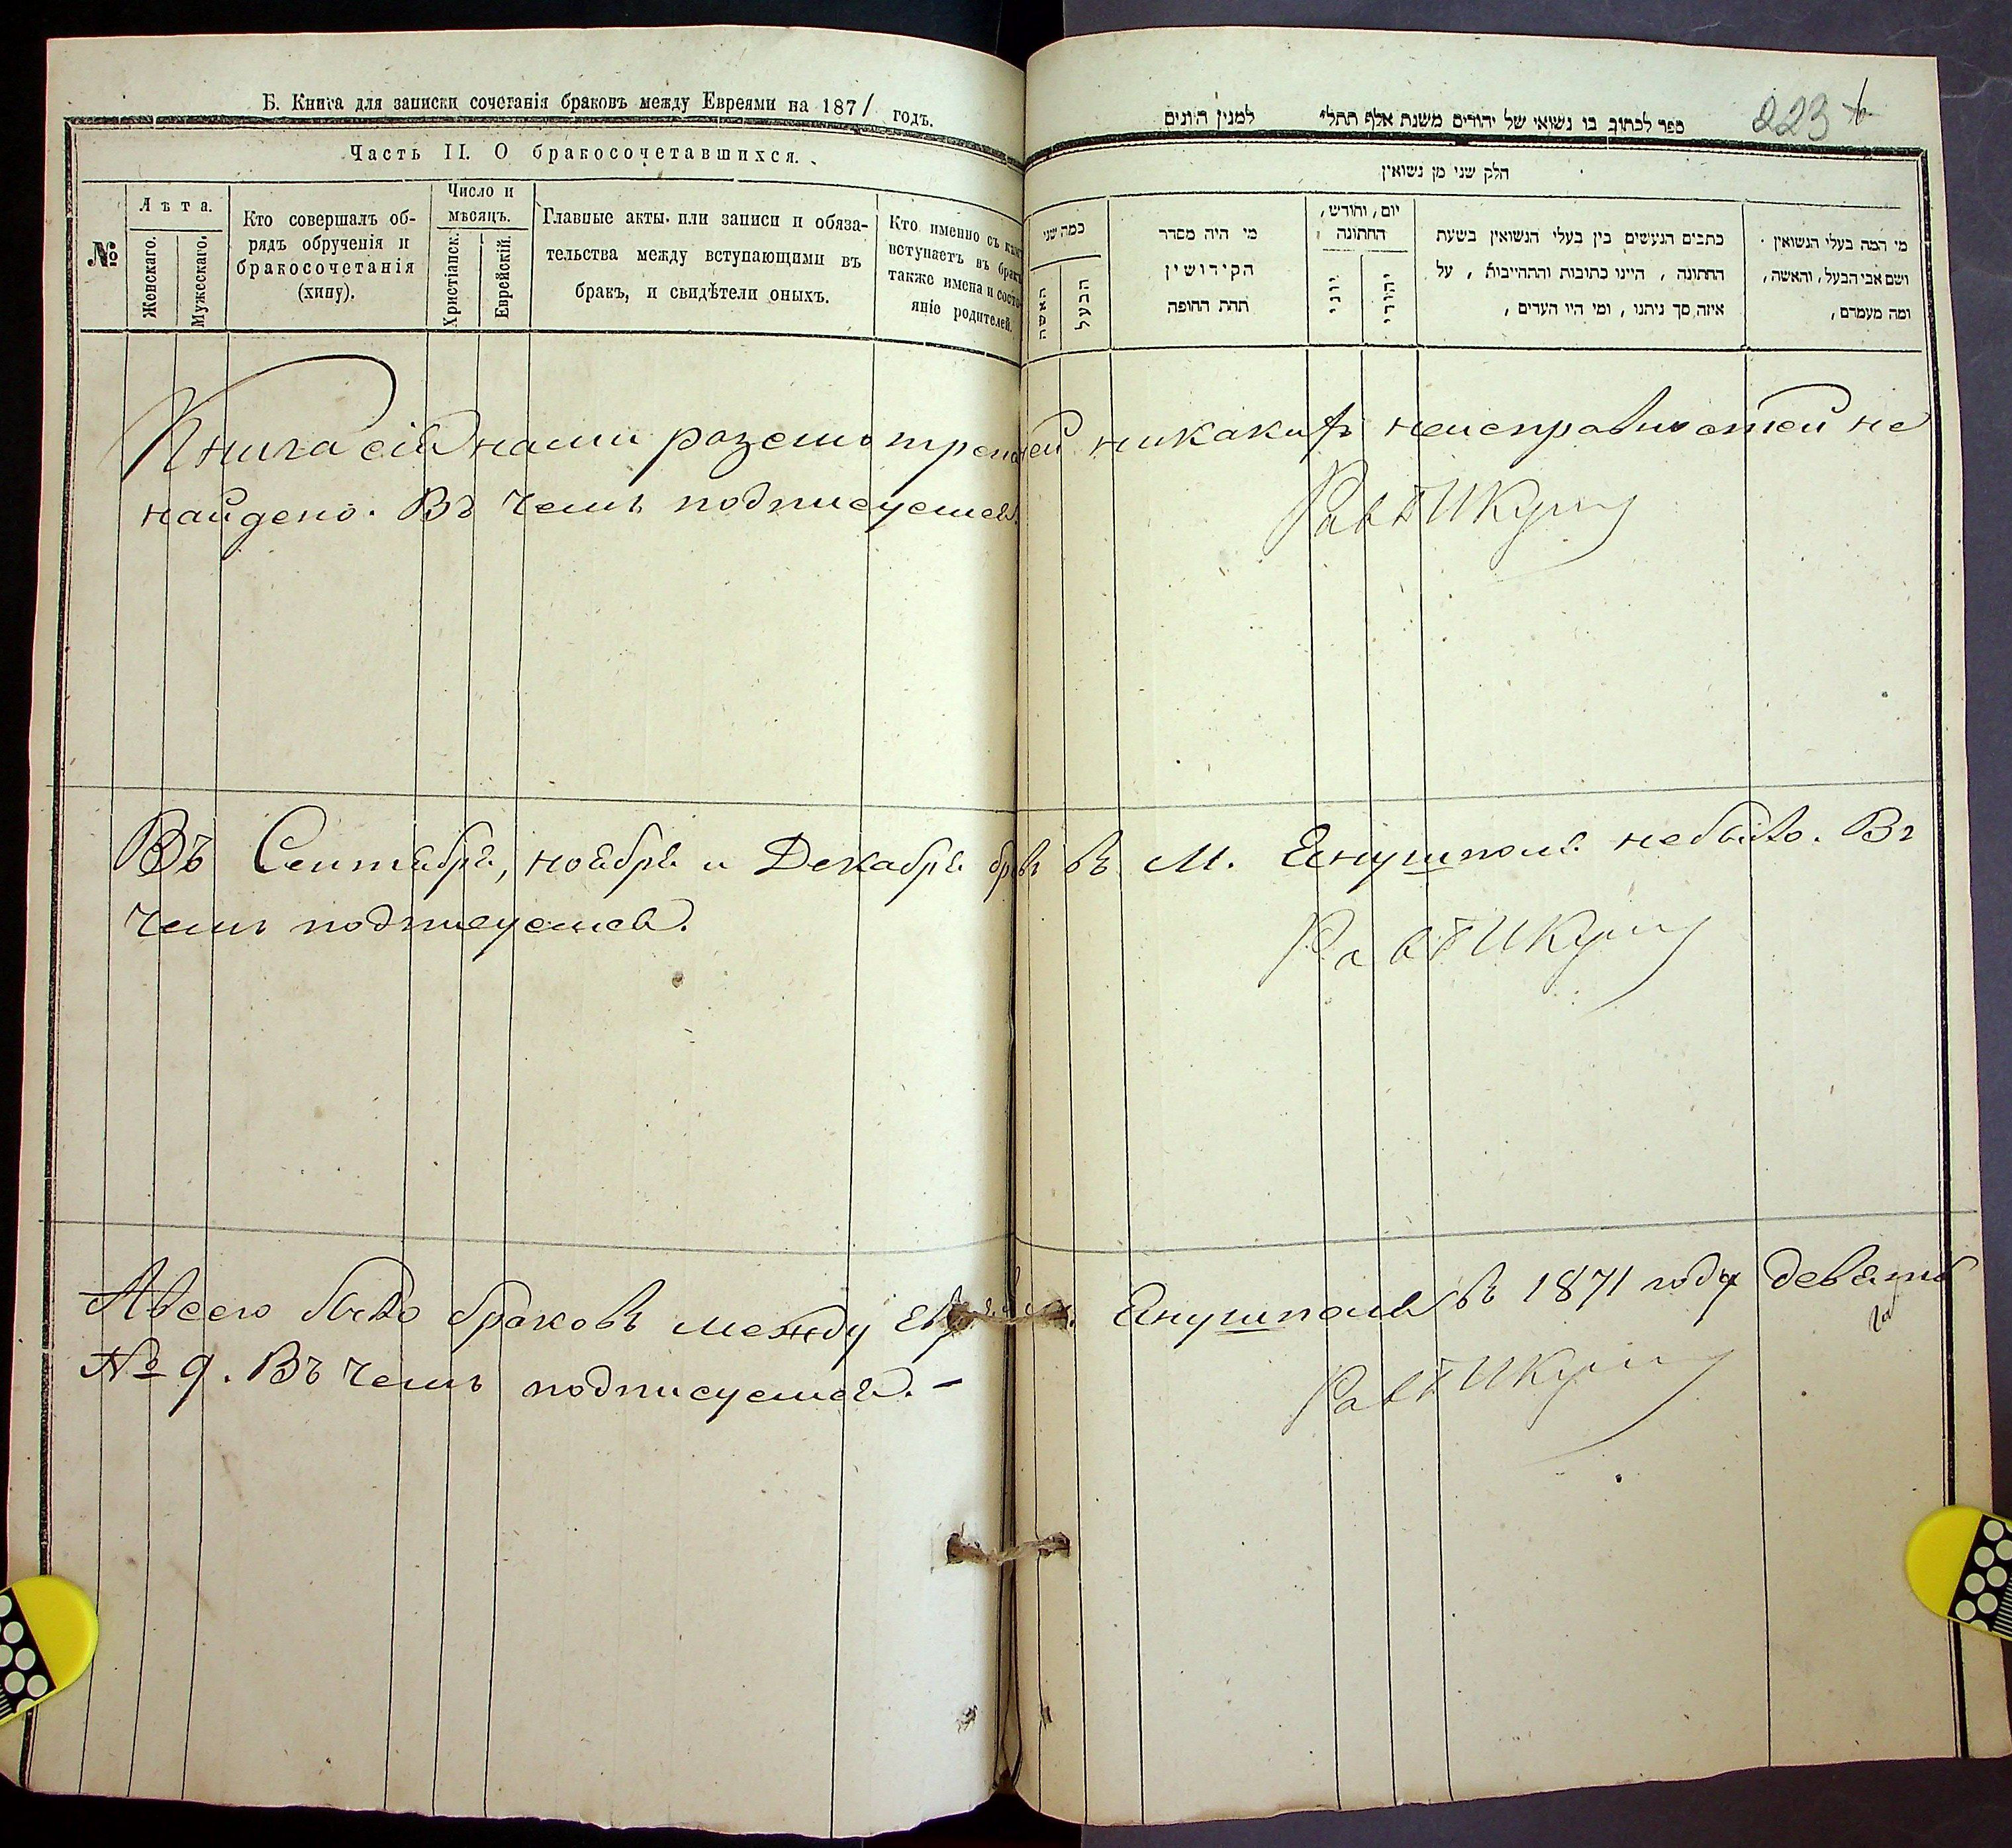 Б. Книга для записки сочетанія браковъ между Евреями на 1871 годъ.
Часть II. О бракосочетавшихся.
№
Лѣта.
Женскаго.
Мужескаго.
Кто совершалъ об-
рядъ обрученія и
бракосочетанія
(хипу).
Число и
мѣсяцъ.
Христіанск.
Еврейскій.
Главные акты. или записи и обяза-
тельства между вступающими въ
бракъ, и свидѣтели оныхъ.
Кто именно съ кѣмъ
вступаетъ въ бракъ
также имена и состо-
яніе родителей.
223
ספר לכתוב בו נשואי של יהודים משנת אלף תתל״ למנין היונים
חלק שני מן נשואין
כמה שני
האשה
הבעל
מי היה מסדר
הקידושין
תחת החופה
יום, וחודש,
החתונה
יוני
יהודי
כתבים הנעשים בין בעלי הנשואין בשעת
החתונה, היינו כתובות והתחייבות, על
איזה סך ניתנו, ומי היו העדים,
מי המה בעלי הנשואין
ושם אבי הבעל, והאשה,
ומה מעמדם,
Книга сія нами разсмотрена ней никакихъ неисправностей не
найдено. Въ чемъ подписуемся.
Въ Сентябрѣ, ноябрѣ и Декабрѣ бр въ М. Янушполѣ небыло. Въ
чемъ подписуемся.
Авсего было браковъ между Евр Янушполѣ въ 1871 году девять
№ 9. Въ чемъ подписуемся. –